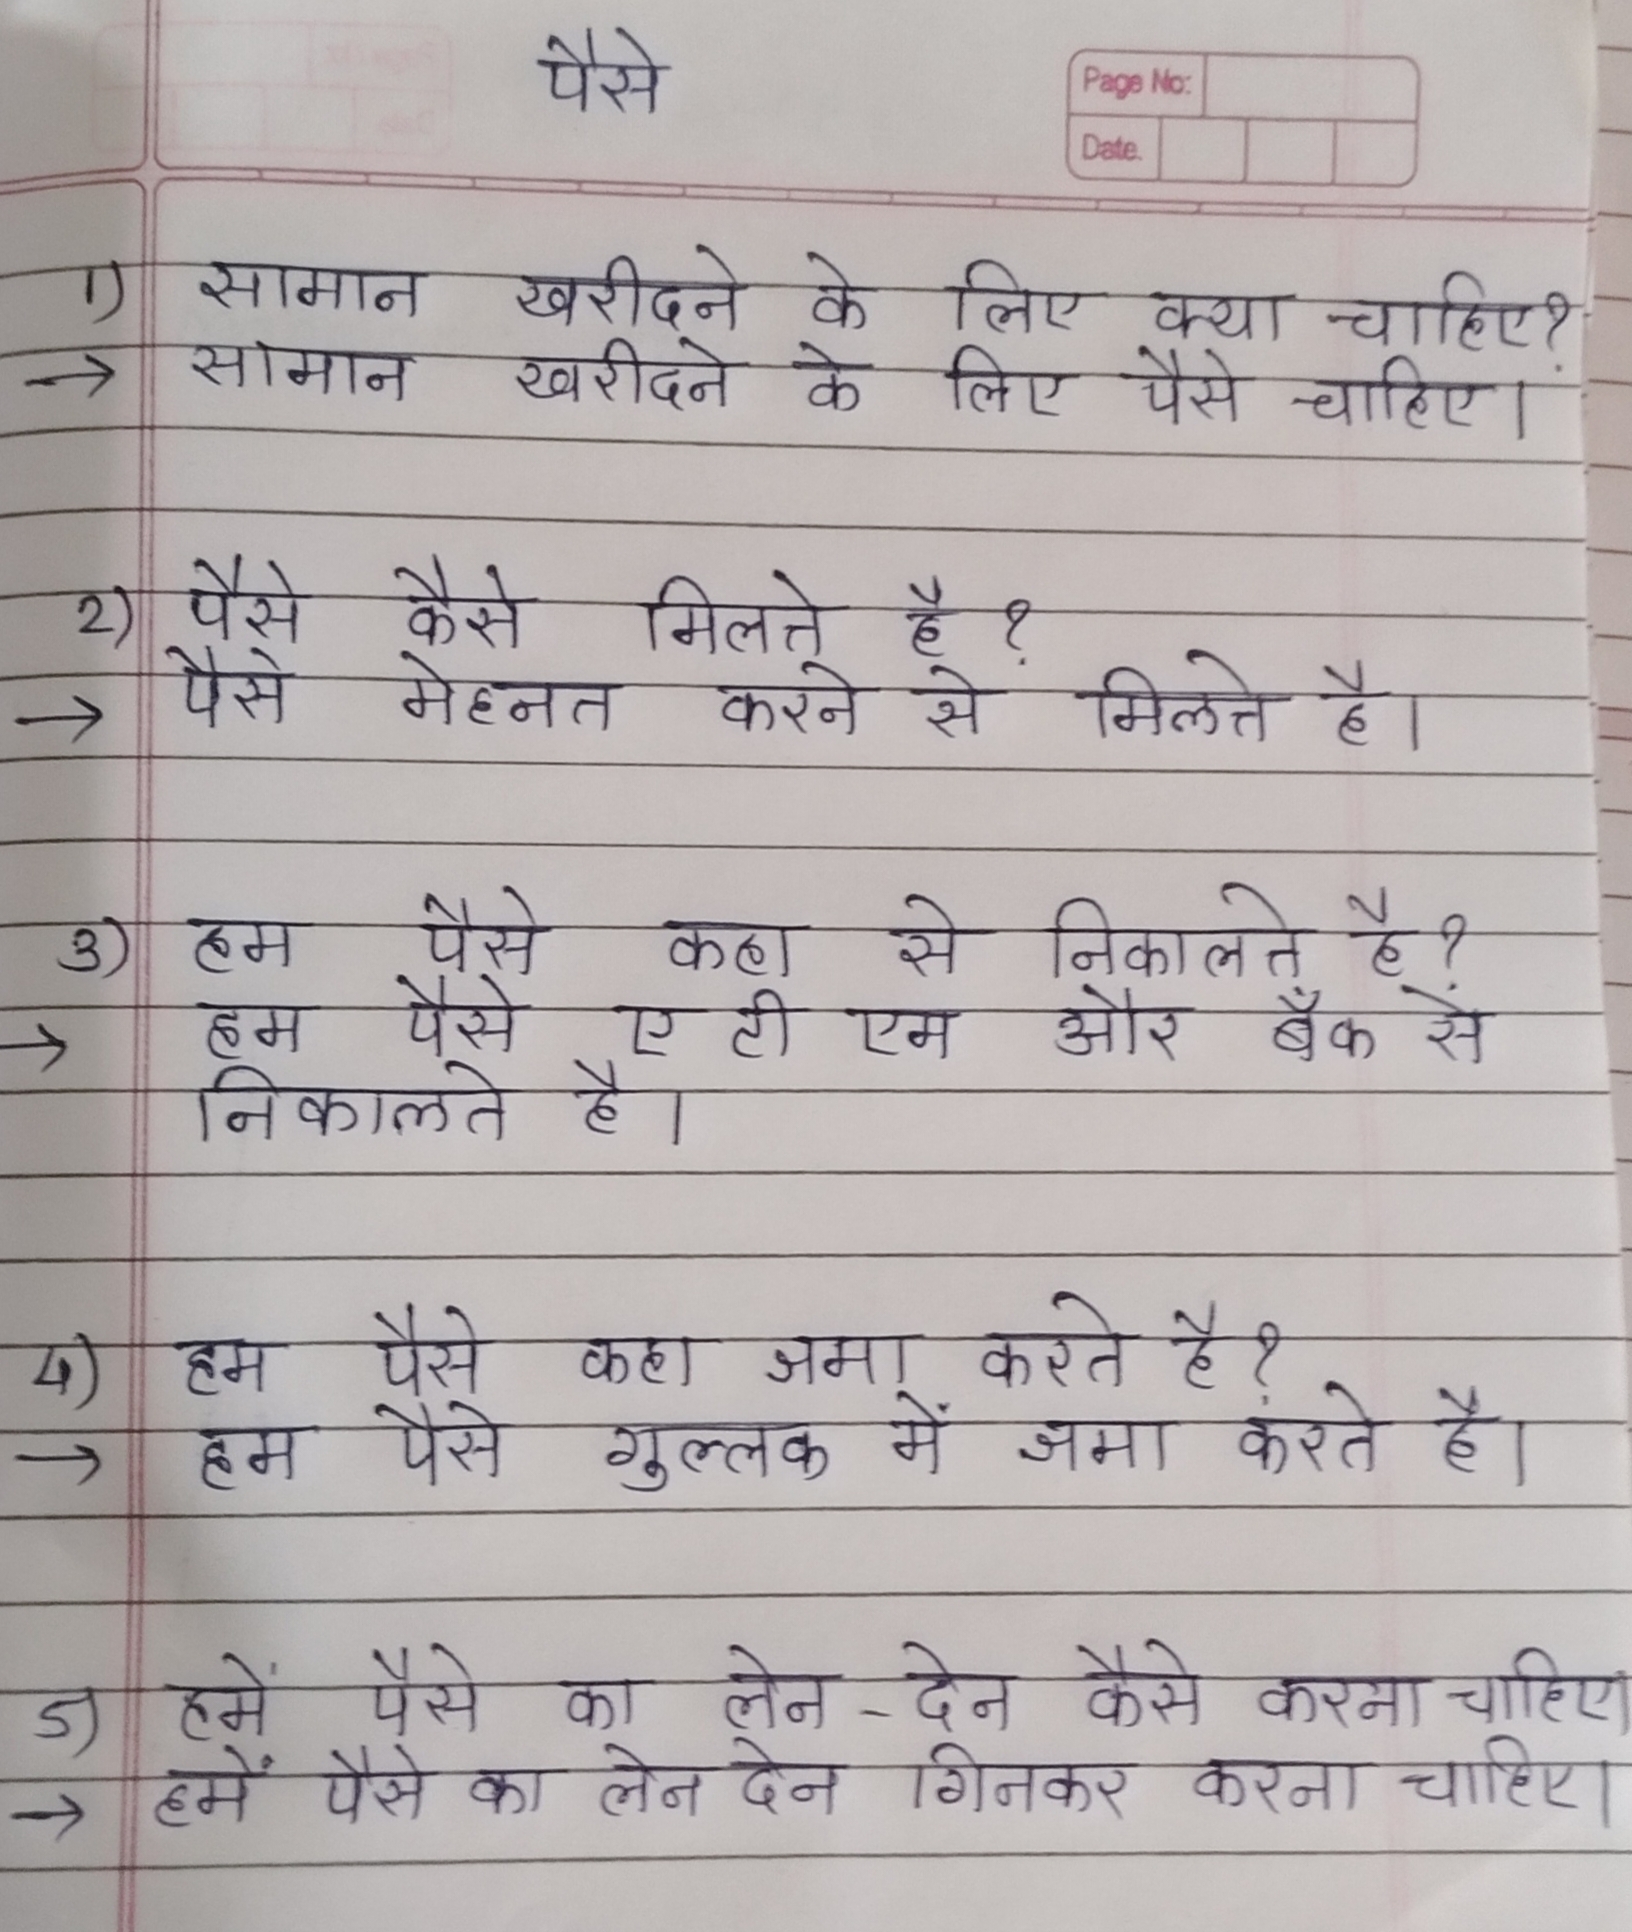 पैसे
Page No:
Date.
1) सामान खरीदने के लिए क्या चाहिए?
→ सामान खरीदने के लिए पैसे चाहिए।
2) पैसे कैसे मिलते है?
→ पैसे मेहनत करने से मिलते है।
3) हम पैसे कहा से निकालते है?
→ हम पैसे ए टी एम और बैंक से
निकालते है।
4) हम पैसे कहा जमा करते है?
→ हम पैसे गुल्लक में जमा करते है।
5) हमें पैसे का लेन - देन कैसे करना चाहिए।
→ हमें पैसे का लेन देन गिनकर करना चाहिए।